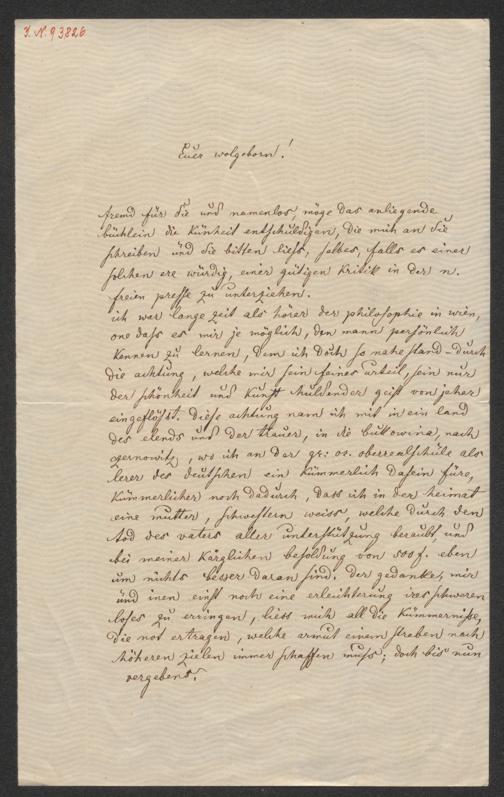 I. N. 93826
Euer wolgeborn!
fremd für sie und namenlos, möge das anliegende
büchlein die künheit entschuldigen, die mich an sie
schreiben und sie bitten liess, selbes, falls es einer
solchen ere würdig, einer gütigen kritik in der n.
freien presse zu unterziehen.
ich war lange zeit als hörer der philosophie in wien,
one dass es mir je möglich, den mann persönlich
kennen zu lernen, dem ich doch so nahe stand – durch
die achtung, welche mir sein feines urteil, sein nur
der schönheit und kunst huldender geist von jeher
eingeflösst. diese achtung nam ich mit in ein land
des elends und der trauer, in die bukkowina, nach
czernowitz, wo ich an der gr: or. oberrealschule als
lerer des deutschen ein kümmerlich dasein füre,
kümmerlicher noch dadurch, dass ich in der heimat
eine mutter, schwestern weiss, welche durch den
tod des vaters aller unterstützung beraubt, und
bei meiner kärglichen besoldung von 500 f. eben
um nichts besser daran sind. der gedanke, mir
und inen einst noch eine erleichterung ires schweren
loses zu erringen, liess mich all die kümmernisse,
die not ertragen, welche armut einem streben nach
höheren zielen immer schaffen muss; doch bis nun
vergebens.